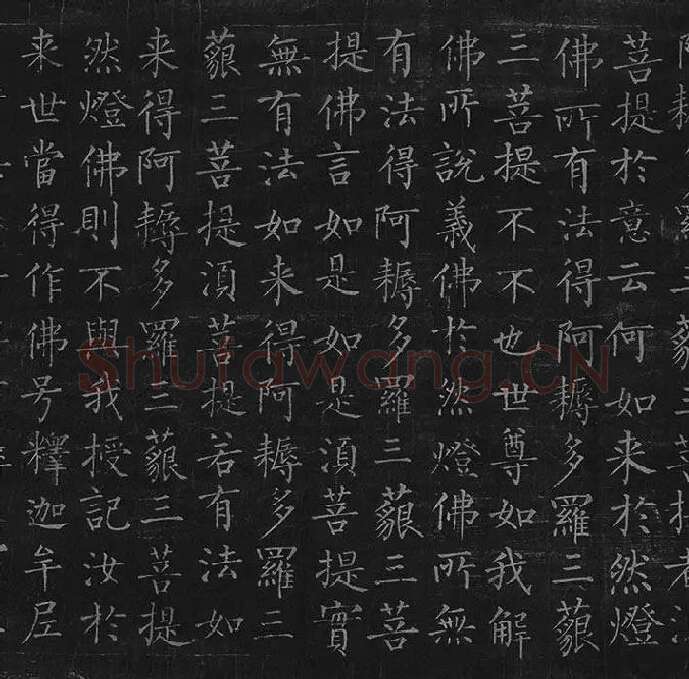 菩提於意云何如来於然燈
佛所有法得阿耨多羅三藐
三菩提不不也世尊如我解
佛所說義佛於然燈佛所無
有法得阿耨多羅三藐三菩
提佛言如是如是湏菩提實
無有法如来得阿耨多羅三
藐三菩提湏菩提若有法如
来得阿耨多羅三藐三菩提
然燈佛則不與我授記汝於
来世當得作佛号釋迦牟尼
Shufawang.CN